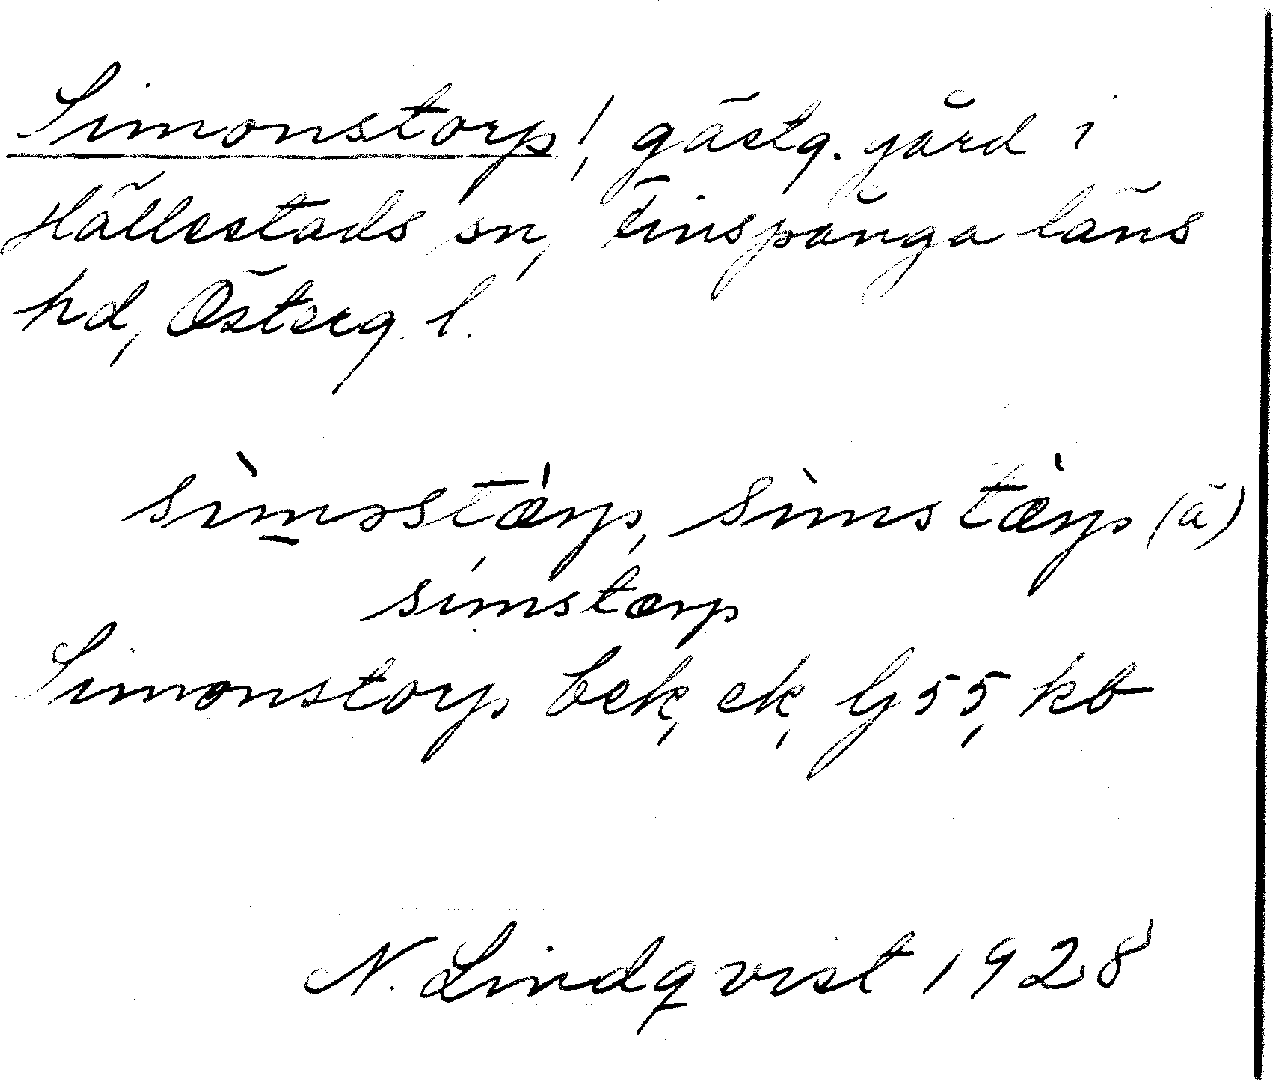 Simonstorp!, gästg. gård i
Hällestads sn, Finspånga läns
hd, Österg. l.
sìmostæ̀rp, sìmstæ̀rp (ä)
simstærp
Simonstorp bek, ek, Gj 55, kb
N. Lindqvist 1928